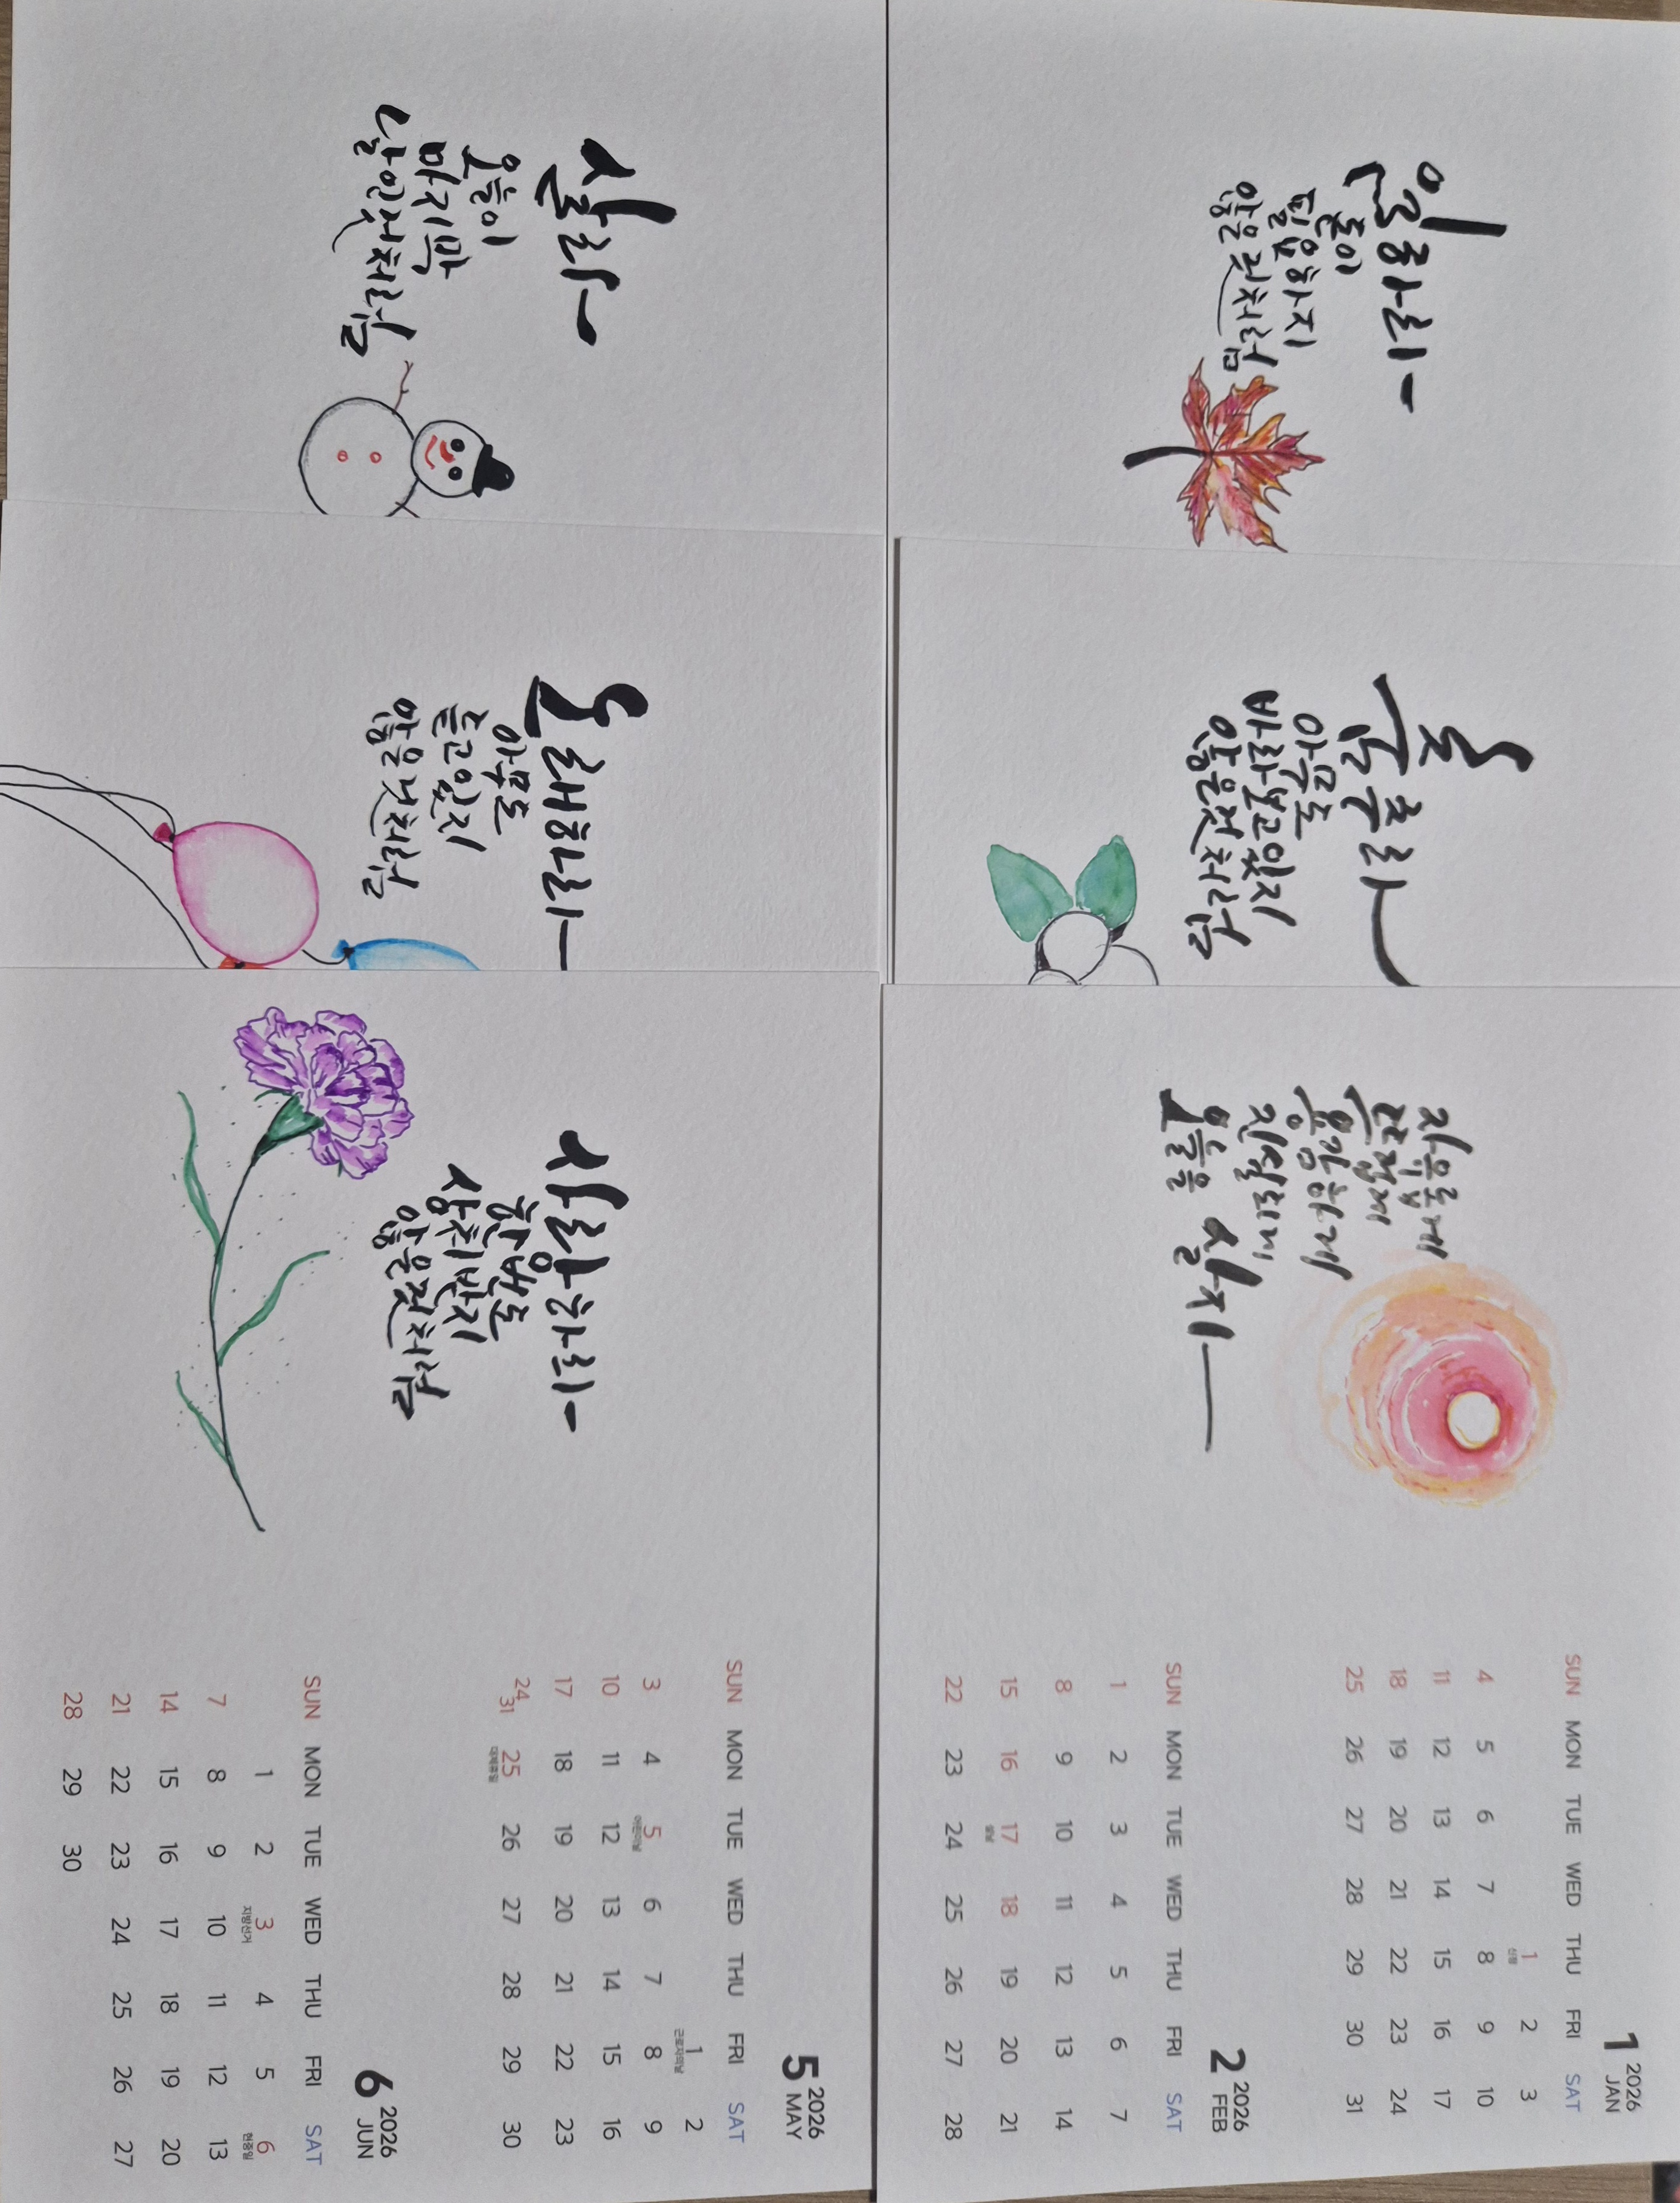 일하라
돈이
필요하지
않은 것처럼
춤추라
아무도
바라보고 있지
않은 것처럼
자유롭게
용감하게
진실되게
오늘을 살자
1 2026 JAN
SUN MON TUE WED THU FRI SAT
1 2 3
신정
4 5 6 7 8 9 10
11 12 13 14 15 16 17
18 19 20 21 22 23 24
25 26 27 28 29 30 31
2 2026 FEB
SUN MON TUE WED THU FRI SAT
1 2 3 4 5 6 7
8 9 10 11 12 13 14
15 16 17 18 19 20 21
설날
22 23 24 25 26 27 28
살라
오늘이
마지막
날인 것처럼
노래하라
아무도
듣고 있지
않은 것처럼
사랑하라
한 번도
상처받지
않은 것처럼
5 2026 MAY
SUN MON TUE WED THU FRI SAT
1 2
근로자의날
3 4 5 6 7 8 9
어린이날
10 11 12 13 14 15 16
17 18 19 20 21 22 23
24 31 25 26 27 28 29 30
대체휴일
6 2026 JUN
SUN MON TUE WED THU FRI SAT
1 2 3 4 5 6
지방선거 현충일
7 8 9 10 11 12 13
14 15 16 17 18 19 20
21 22 23 24 25 26 27
28 29 30